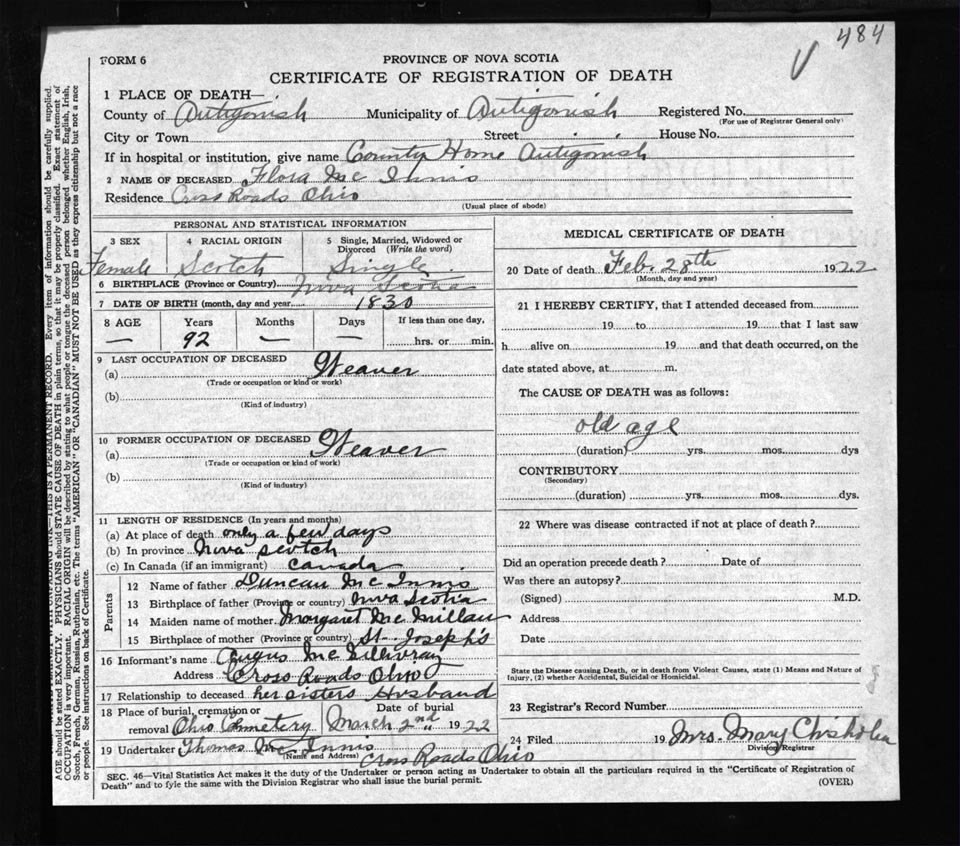 484
FORM 6
PROVINCE OF NOVA SCOTIA
CERTIFICATE OF REGISTRATION OF DEATH
1 PLACE OF DEATH—
County of Antigonish Municipality of Antigonish Registered No.
(For use of Registrar General only)
City or Town Street House No.
If in hospital or institution, give name County Home Antigonish
2 NAME OF DECEASED Flora Mc Innis
Residence Cross Roads Ohio
(Usual place of abode)
PERSONAL AND STATISTICAL INFORMATION
3 SEX 4 RACIAL ORIGIN 5 Single, Married, Widowed or Divorced (Write the word)
Female Scotch Single
6 BIRTHPLACE (Province or Country) Nova Scotia
7 DATE OF BIRTH (month, day and year) 1830
8 AGE Years Months Days If less than one day,
— 92 — — hrs. or min.
9 LAST OCCUPATION OF DECEASED
(a) Weaver
(Trade or occupation or kind of work)
(b)
(Kind of industry)
10 FORMER OCCUPATION OF DECEASED
(a) Weaver
(Trade or occupation or kind of work)
(b)
(Kind of industry)
11 LENGTH OF RESIDENCE (In years and months)
(a) At place of death only a few days
(b) In province Nova Scotch
(c) In Canada (if an immigrant) Canada
Parents
12 Name of father Duncan Mc Innis
13 Birthplace of father (Province or country) Nova Scotia
14 Maiden name of mother Margaret Mc Millan
15 Birthplace of mother (Province or country) St. Joseph's
16 Informant's name Angus Mc Gillivray
Address Cross Roads Ohio
17 Relationship to deceased her sisters Husband
18 Place of burial, cremation or Date of burial
removal Ohio Cemetery March 2nd 1922
19 Undertaker Thomas Mc Innis
(Name and Address) Cross Roads Ohio
MEDICAL CERTIFICATE OF DEATH
20 Date of death Feb. 28th 1922
(Month, day and year)
21 I HEREBY CERTIFY, that I attended deceased from
19 to 19 that I last saw
h alive on 19 and that death occurred, on the
date stated above, at m.
The CAUSE OF DEATH was as follows:
old age
(duration) yrs. mos. dys
CONTRIBUTORY
(Secondary)
(duration) yrs. mos. dys.
22 Where was disease contracted if not at place of death?
Did an operation precede death? Date of
Was there an autopsy?
(Signed) M.D.
Address
Date
State the Disease causing Death, or in death from Violent Causes, state (1) Means and Nature of
Injury, (2) whether Accidental, Suicidal or Homicidal.
23 Registrar's Record Number
24 Filed 19 Mrs. Mary Chisholm
Division Registrar
SEC. 46—Vital Statistics Act makes it the duty of the Undertaker or person acting as Undertaker to obtain all the particulars required in the "Certificate of Registration of
Death" and to fyle the same with the Division Registrar who shall issue the burial permit. (OVER)
THIS IS A PERMANENT RECORD. Every item of information should be carefully supplied.
AGE should be stated EXACTLY. PHYSICIANS should STATE CAUSE OF DEATH in plain terms, so that it may be properly classified. Exact statement of
OCCUPATION is very important. RACIAL ORIGIN will be described by stating to what people or tongue the deceased person belonged whether English, Irish,
Scotch, French, German, Russian, Ruthenian, etc. The terms "AMERICAN" OR "CANADIAN" MUST NOT BE USED as they express citizenship but not a race
or people. See instructions on back of Certificate.